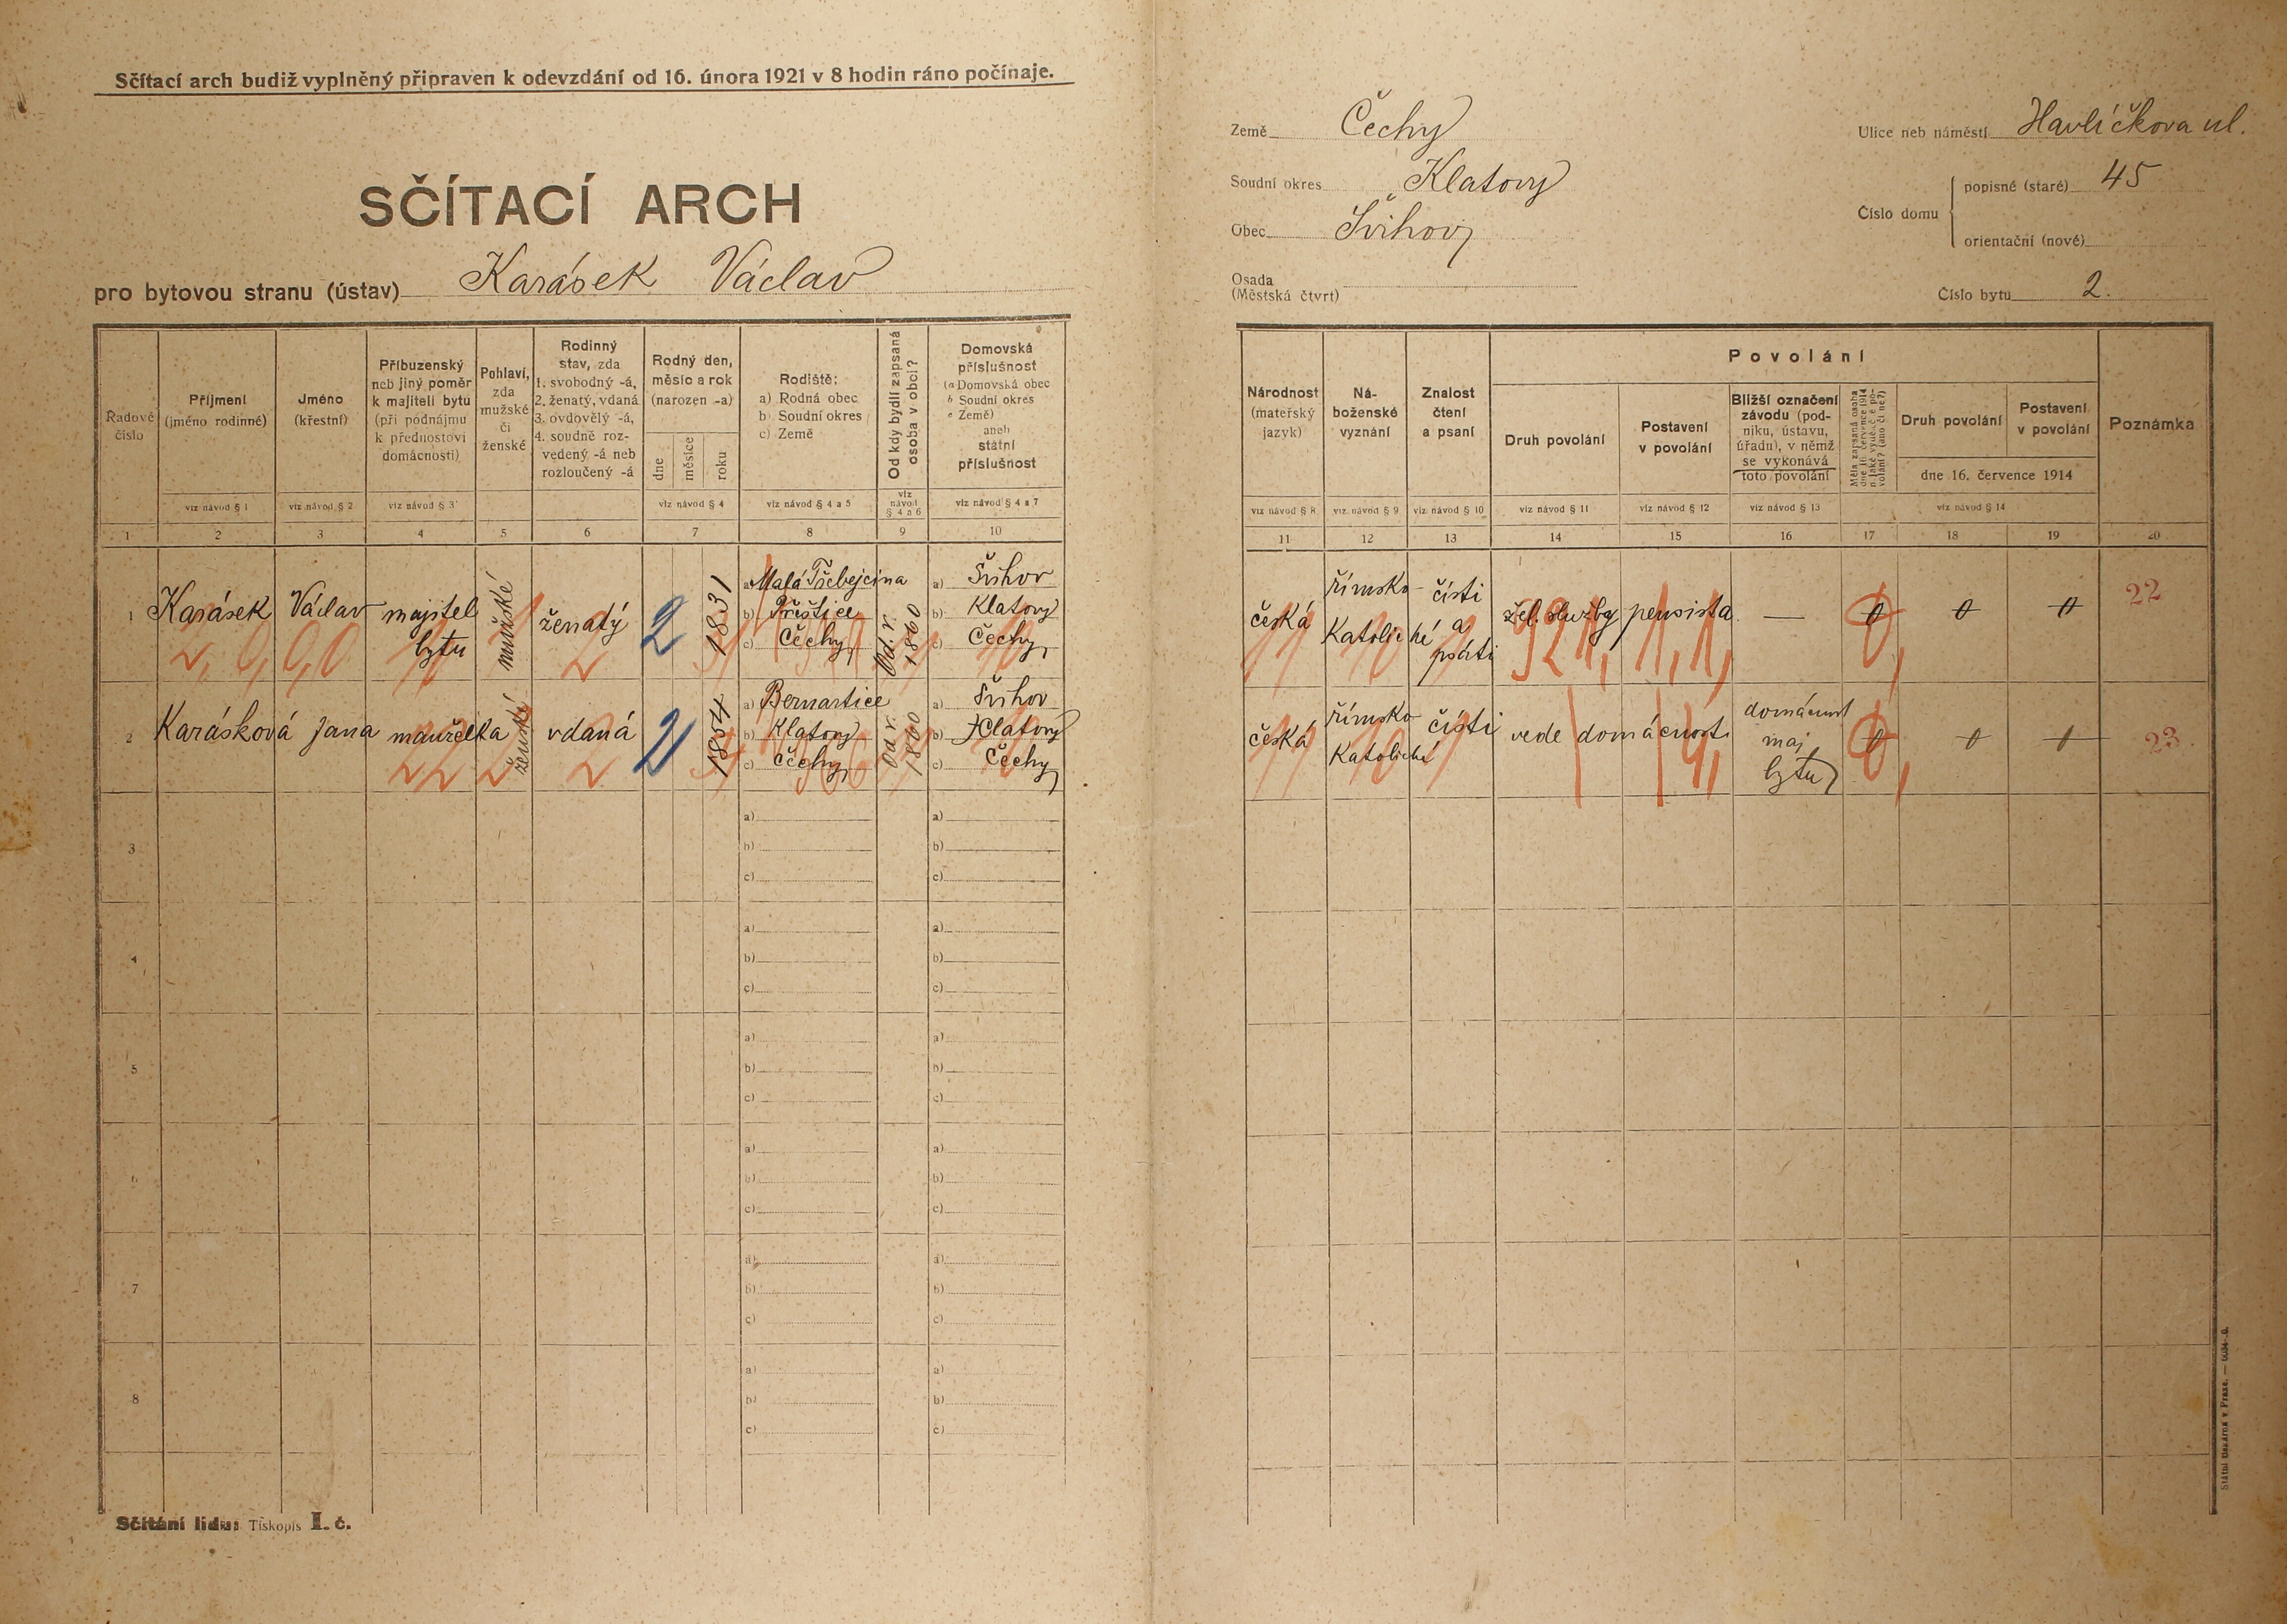 Sčítací arch budiž vyplněný připraven k odevzdání od 16. února 1921 v 8 hodin ráno počínaje.
SČÍTACÍ ARCH
pro bytovou stranu (ústav) Karásek Václav
Země Čechy
Soudní okres Klatovy
Obec Švihov
Osada
(Městská čtvrt)
Ulice neb náměstí Havlíčkova ul.
Číslo domu
popisné (staré) 45
orientační (nové)
Číslo bytu 2.
Řadové číslo
Příjmení (jméno rodinné)
Jméno (křestní)
Příbuzenský neb jiný poměr k majiteli bytu (při podnájmu k přednostovi domácnosti)
Pohlaví, zda mužské či ženské
Rodinný stav, zda 1. svobodný -á, 2. ženatý, vdaná 3. ovdovělý -á, 4. soudně rozvedený -á neb rozloučený -á
Rodný den, měsíc a rok (narozen -a)
dne
měsíce
roku
Rodiště:
a) Rodná obec
b) Soudní okres
c) Země
Od kdy bydlí zapsaná osoba v obci?
Domovská příslušnost
(a Domovská obec
b Soudní okres
c Země)
aneb
státní příslušnost
viz návod § 1
viz návod § 2
viz návod § 3
viz návod § 4
viz návod § 4 a 5
viz návod § 4 a 6
viz návod § 4 a 7
1 2 3 4 5 6 7 8 9 10
Národnost (mateřský jazyk)
Náboženské vyznání
Znalost čtení a psaní
Povolání
Druh povolání
Postavení v povolání
Bližší označení závodu (podniku, ústavu, úřadu), v němž se vykonává toto povolání
Druh povolání
Postavení v povolání
dne 16. července 1914
Poznámka
viz návod § 8
viz návod § 9
viz návod § 10
viz návod § 11
viz návod § 12
viz návod § 13
viz návod § 14
11 12 13 14 15 16 17 18 19 20
1 Karásek Václav majitel bytu mužské ženatý 2 1831
a) Malá Třebejcina
b) Přeštice
c) Čechy
Od r. 1860
a) Švihov
b) Klatovy
c) Čechy
česká římsko-katolické čísti a psáti žel. služby pensista — 0 0 0 22
2 Karásková Jana manželka ženské vdaná 2 1854
a) Bernartice
b) Klatovy
c) Čechy
Od r. 1880
a) Švihov
b) Klatovy
c) Čechy
česká římsko katolické čísti vede domácnost domácnost maj. bytu 0 0 0 23.
3
a)
b)
c)
a)
b)
c)
4
a)
b)
c)
a)
b)
c)
5
a)
b)
c)
a)
b)
c)
6
a)
b)
c)
a)
b)
c)
7
a)
b)
c)
a)
b)
c)
8
a)
b)
c)
a)
b)
c)
Sčítání lidu: Tiskopis I. č.
Státní tiskárna v Praze.